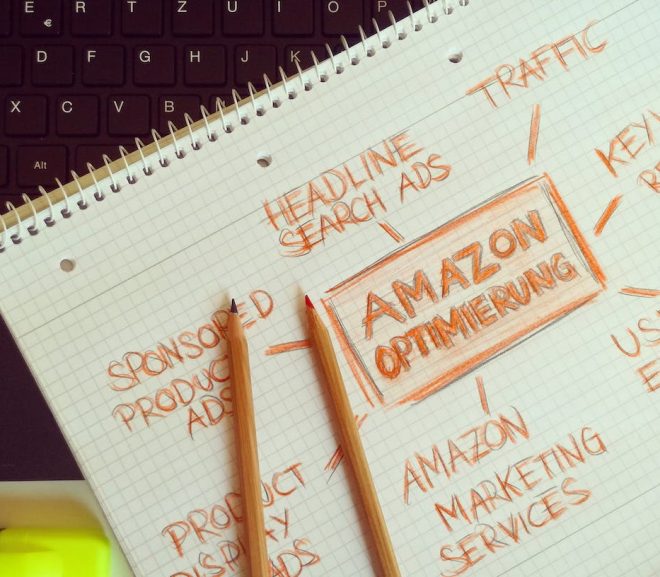 E R T Z U I O P
€
D F G H J K
X C V B
Alt
TRAFFIC
HEADLINE
SEARCH ADS
AMAZON
OPTIMIERUNG
SPONSORED
PRODUCT
ADS
PRODUCT
DISPLAY
ADS
AMAZON
MARKETING
SERVICES